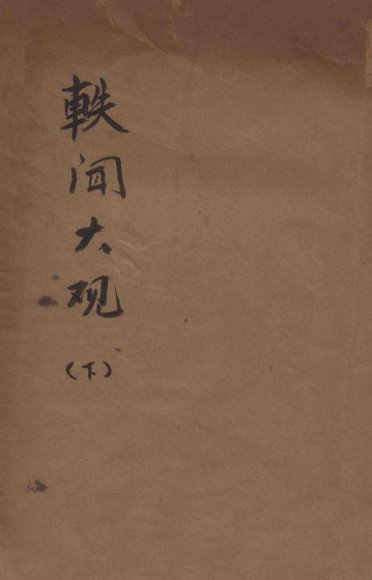 軼闻大观
（下）